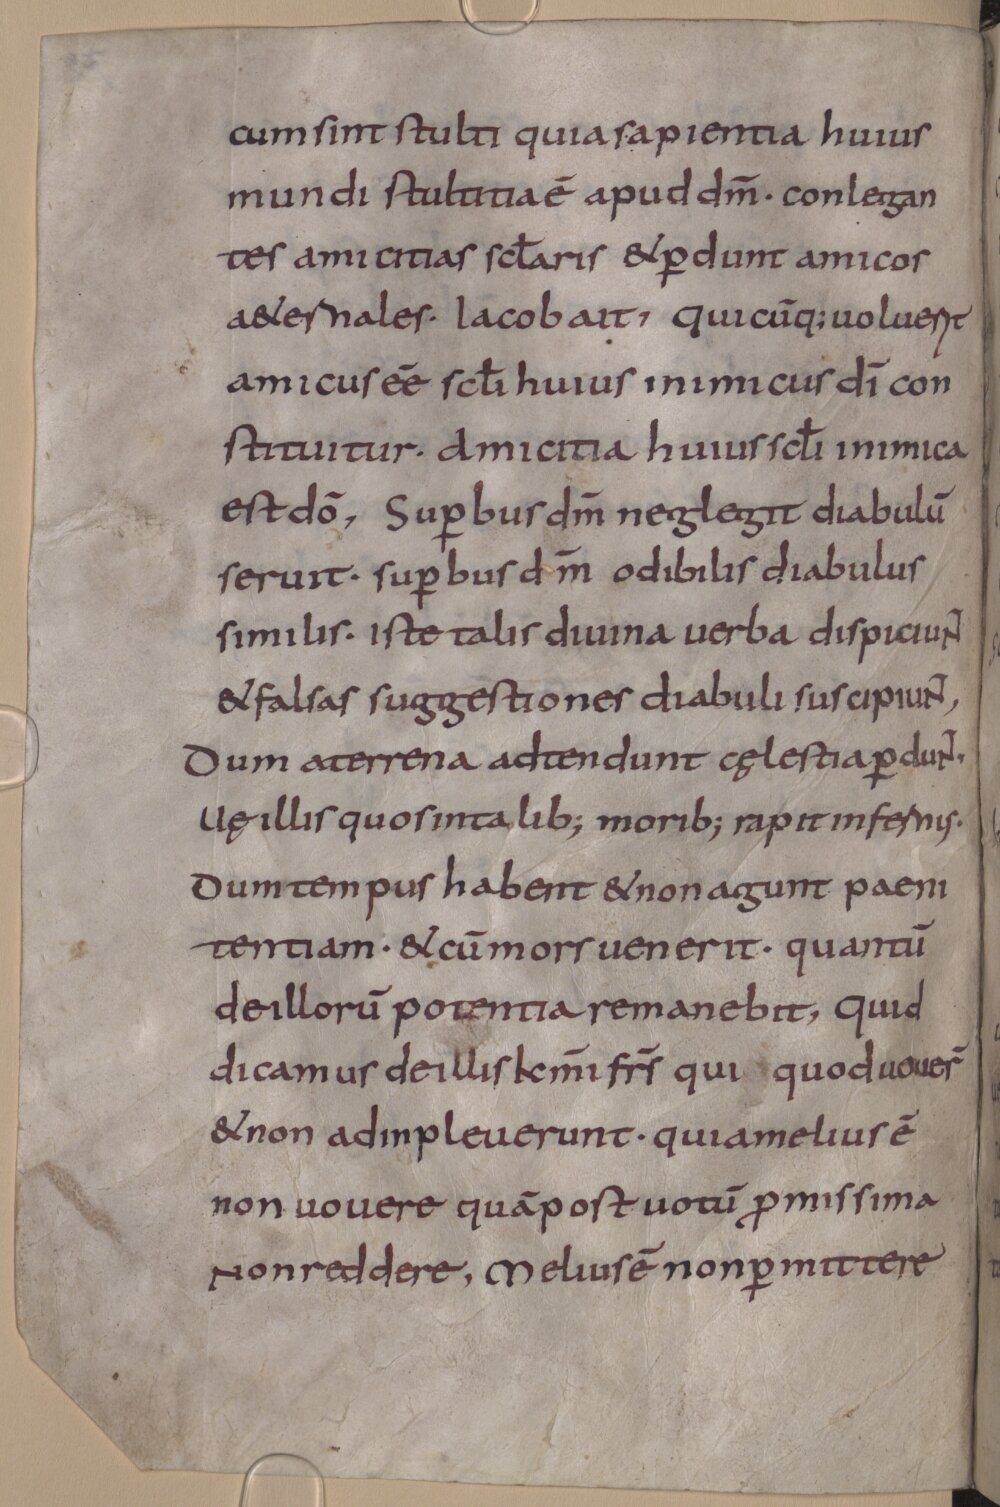 cum sint stulti quia sapientia huius
mundi stultitia ē apud dm̄. conlegan
tes amicitias scƚaris & ꝑdunt amicos
a&ernales. Iacob ait, Quicūq; uoluerit
amicus eē̄ scƚi huius inimicus dī con
stituitur. Amicitia huius scƚi inimica
est dō, Suꝑbus dm̄ neglegit diabulū
seruit. suꝑbus dm̄ odibilis diabulus
similis. iste talis diuina uerba dispiciunt
& falsas suggestiones diabuli suscipiunt,
Dum a terrena adtendunt cęlestia ꝑdunt,
Uę illis quos in talib; morib; rapit infernis.
Dum tempus habent & non agunt paeni
tentiam. & cū mors uenerit. quantū
de illorū potentia remanebit, Quid
dicamus de illis kmī frs̄ qui quod uouer̄
& non adinpleuerunt. quia melius ē
non uouere quā post uotū ꝓmissima
Non reddere, Melius ē non ꝑmittere